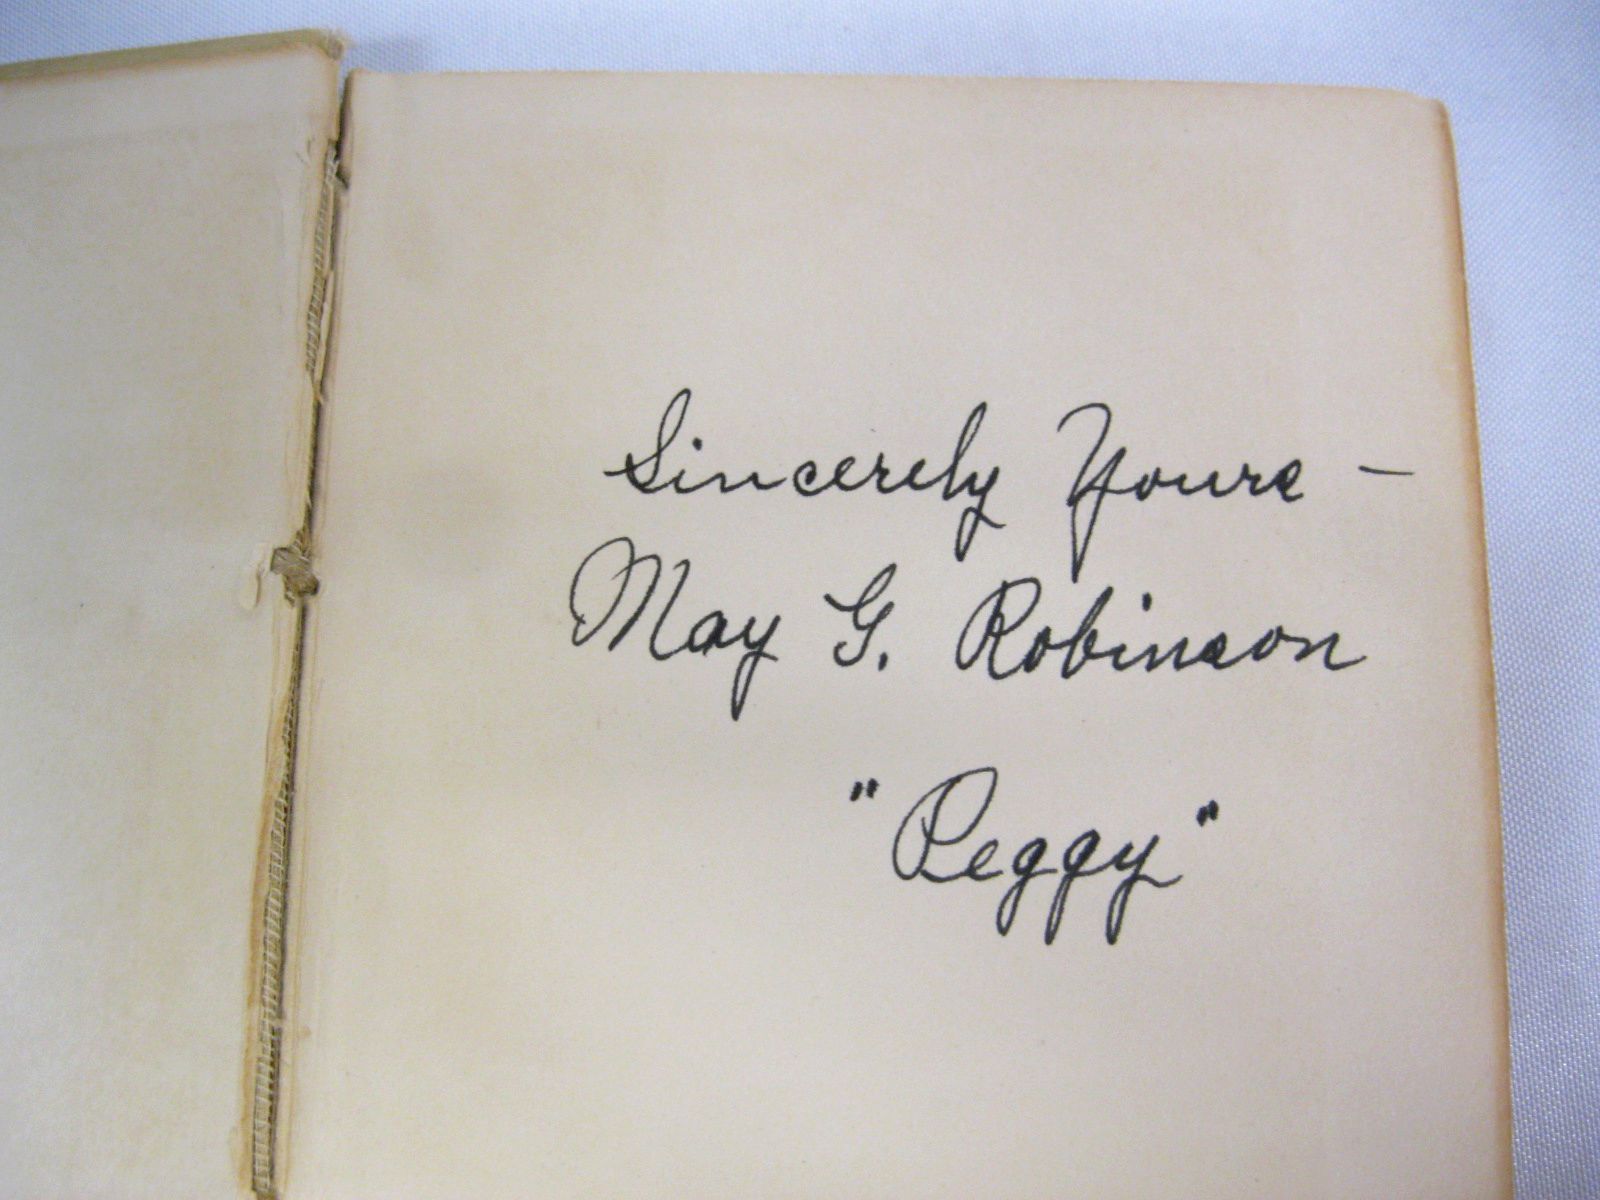 Sincerely Yours -
May G. Robinson
"Peggy"